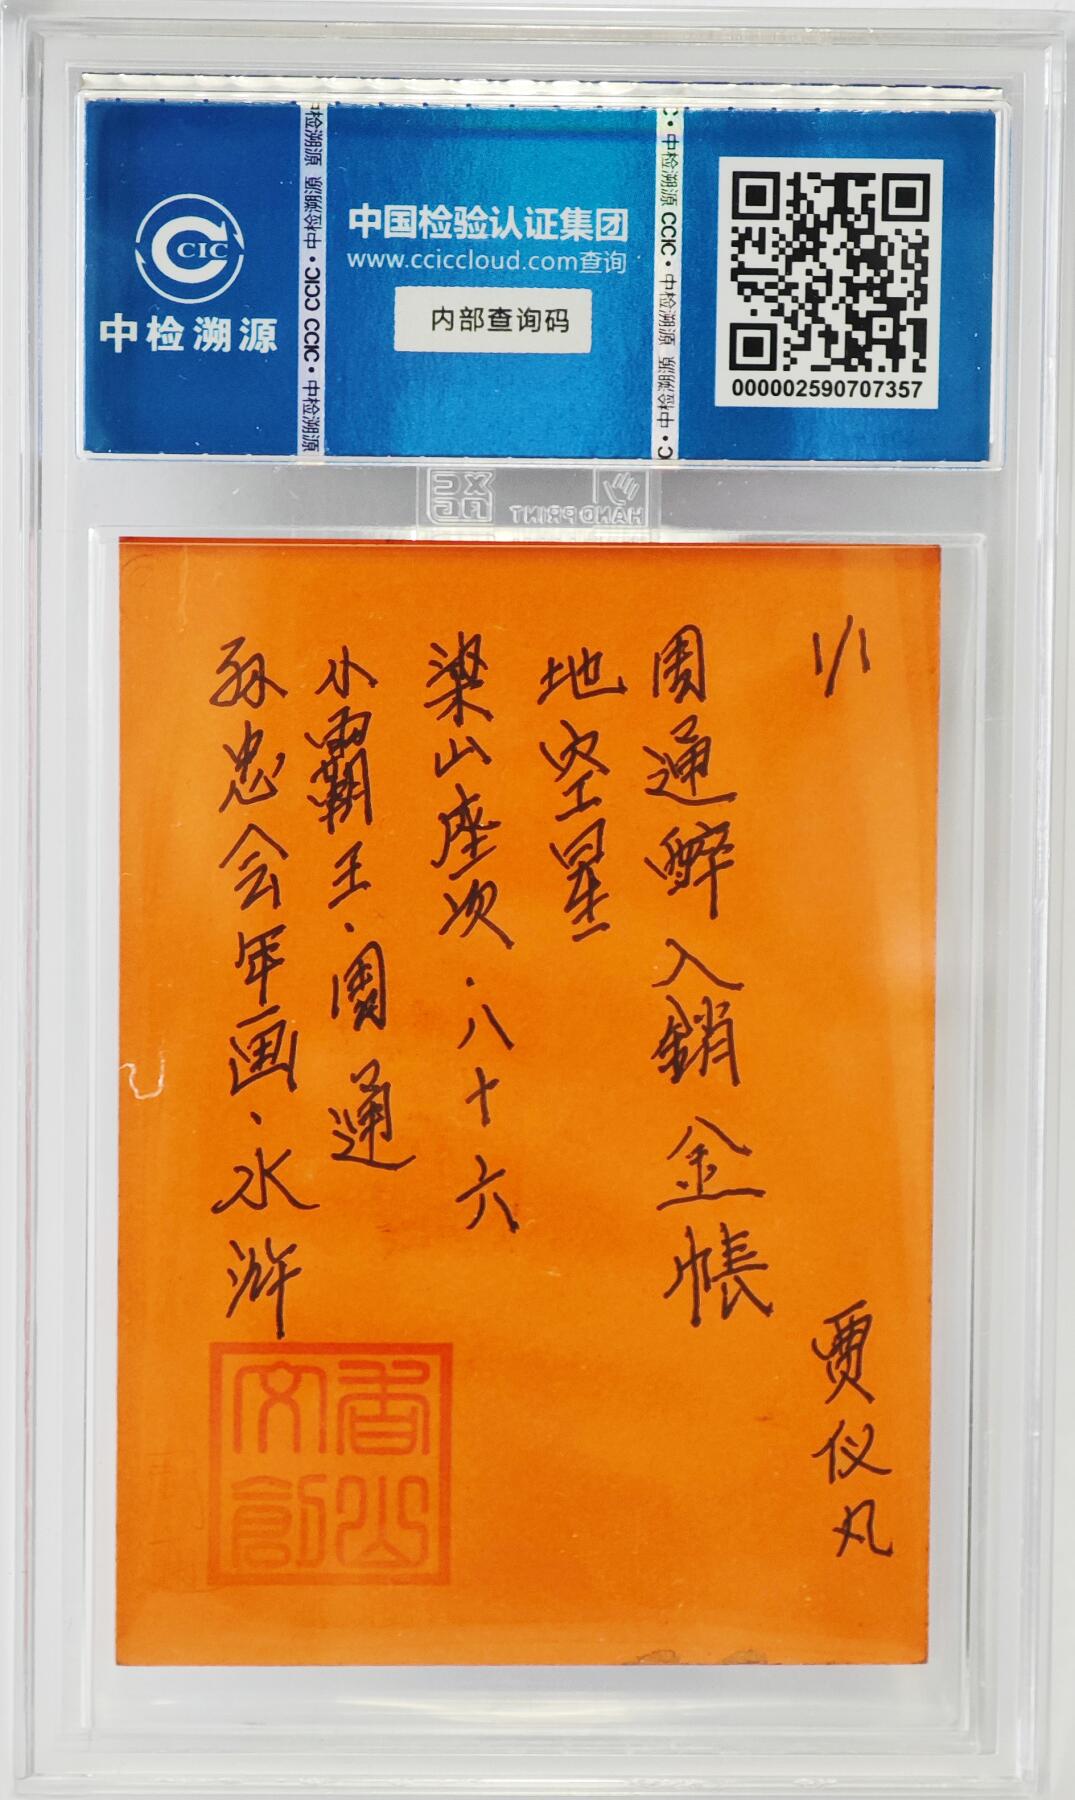 CCIC
中检溯源
中检溯源 CCIC
中国检验认证集团
www.cciccloud.com查询
内部查询码
000002590707357
HAND PRINT
孙忠会年画·水浒
小霸王·周通
梁山座次·八十六
地空星
周通醉入銷金帳
1/1
贾仪丸
香山文创